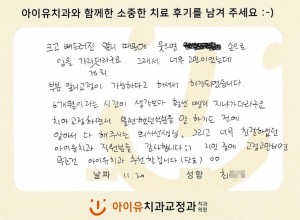 아이유치과와 함께한 소중한 치료 후기를 남겨 주세요 :-)
크고 삐뚤어진 앞니 때문에 웃으면 손으로
입을 가리더라구요. 그래서 너무 고민이었는데
부분 앞니교정이 가능하다고 해서 하게되었습니다.
6개월이라는 시간이 생각보다 훨씬 빨리 지나가더라구요
치아교정하면서 불편했던부분들을 말 하기도 전에
알아서 다 해주시는 의사선생님, 그리고 너무 친절하셨던
아이유치과 직원분들 감사합니다 :) 지인 중에 교정고민하면
무조건 아이유치과 추천 할겁니다
날짜 11.20 성함
아이유치과교정과 치과의원